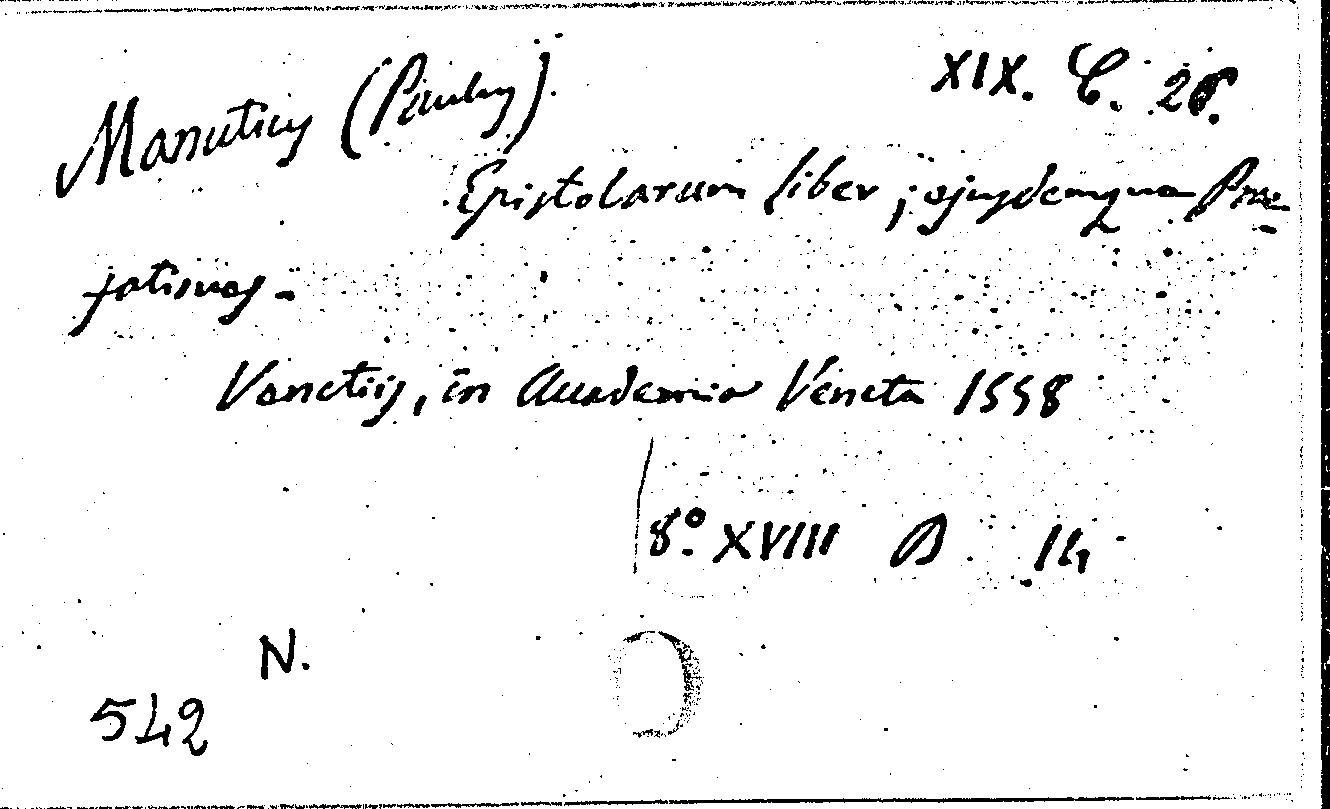 XIX. C. 28.
Manutius (Paulus).
Epistolarum liber; ejusdemque Prae-
fationes.
Venetiis, in Academia Veneta 1558
8º XVIII B 14
N.
542